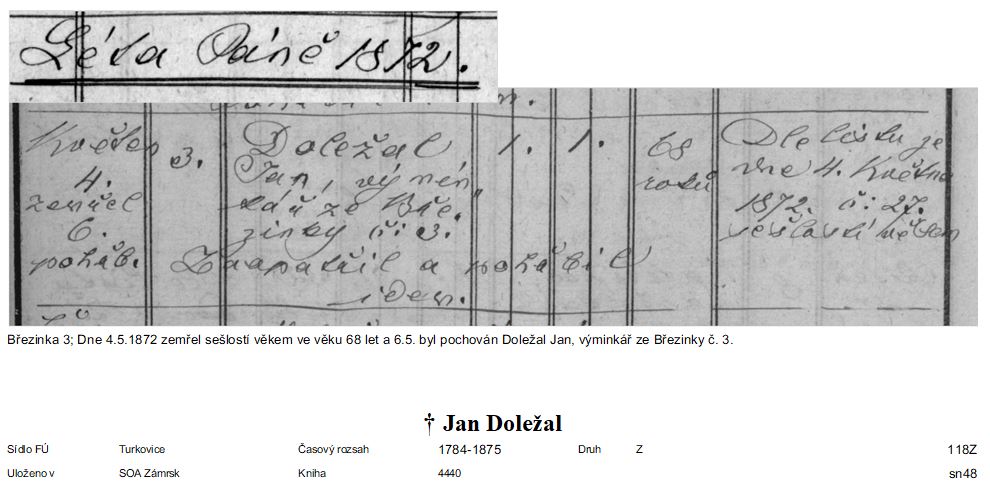 Léta Páně 1872.
Květen 3. Doležal 1. 1. 68 Dle listu je
4. Jan, výmin- roků dne 4. Května
zemřel kář ze Bře- 1872. č: 27.
6. zinky čís 3. sešlostí věkem
pohřb. Zaopatřil a pohřbil
idem.
Březinka 3; Dne 4.5.1872 zemřel sešlostí věkem ve věku 68 let a 6.5. byl pochován Doležal Jan, výminkář ze Březinky č. 3.
† Jan Doležal
Sídlo FÚ Turkovice Časový rozsah 1784-1875 Druh Z 118Z
Uloženo v SOA Zámrsk Kniha 4440 sn48